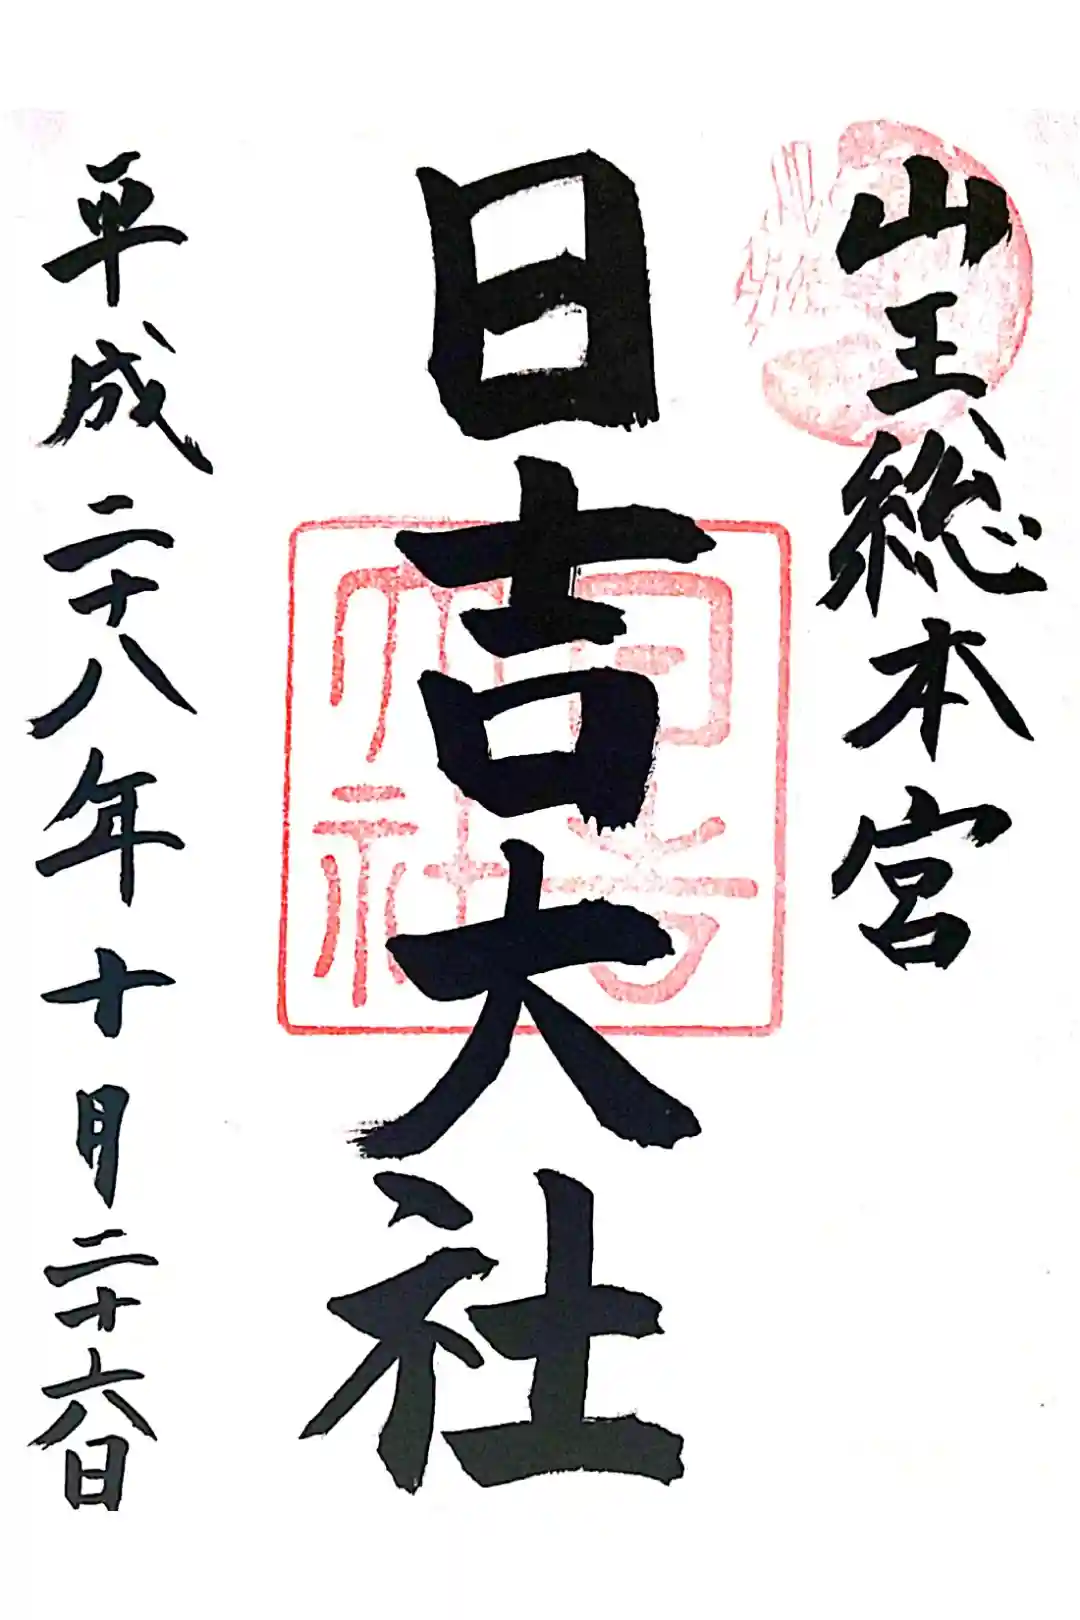 山王総本宮
日吉大社
平成二十八年十月二十六日
日吉
大社